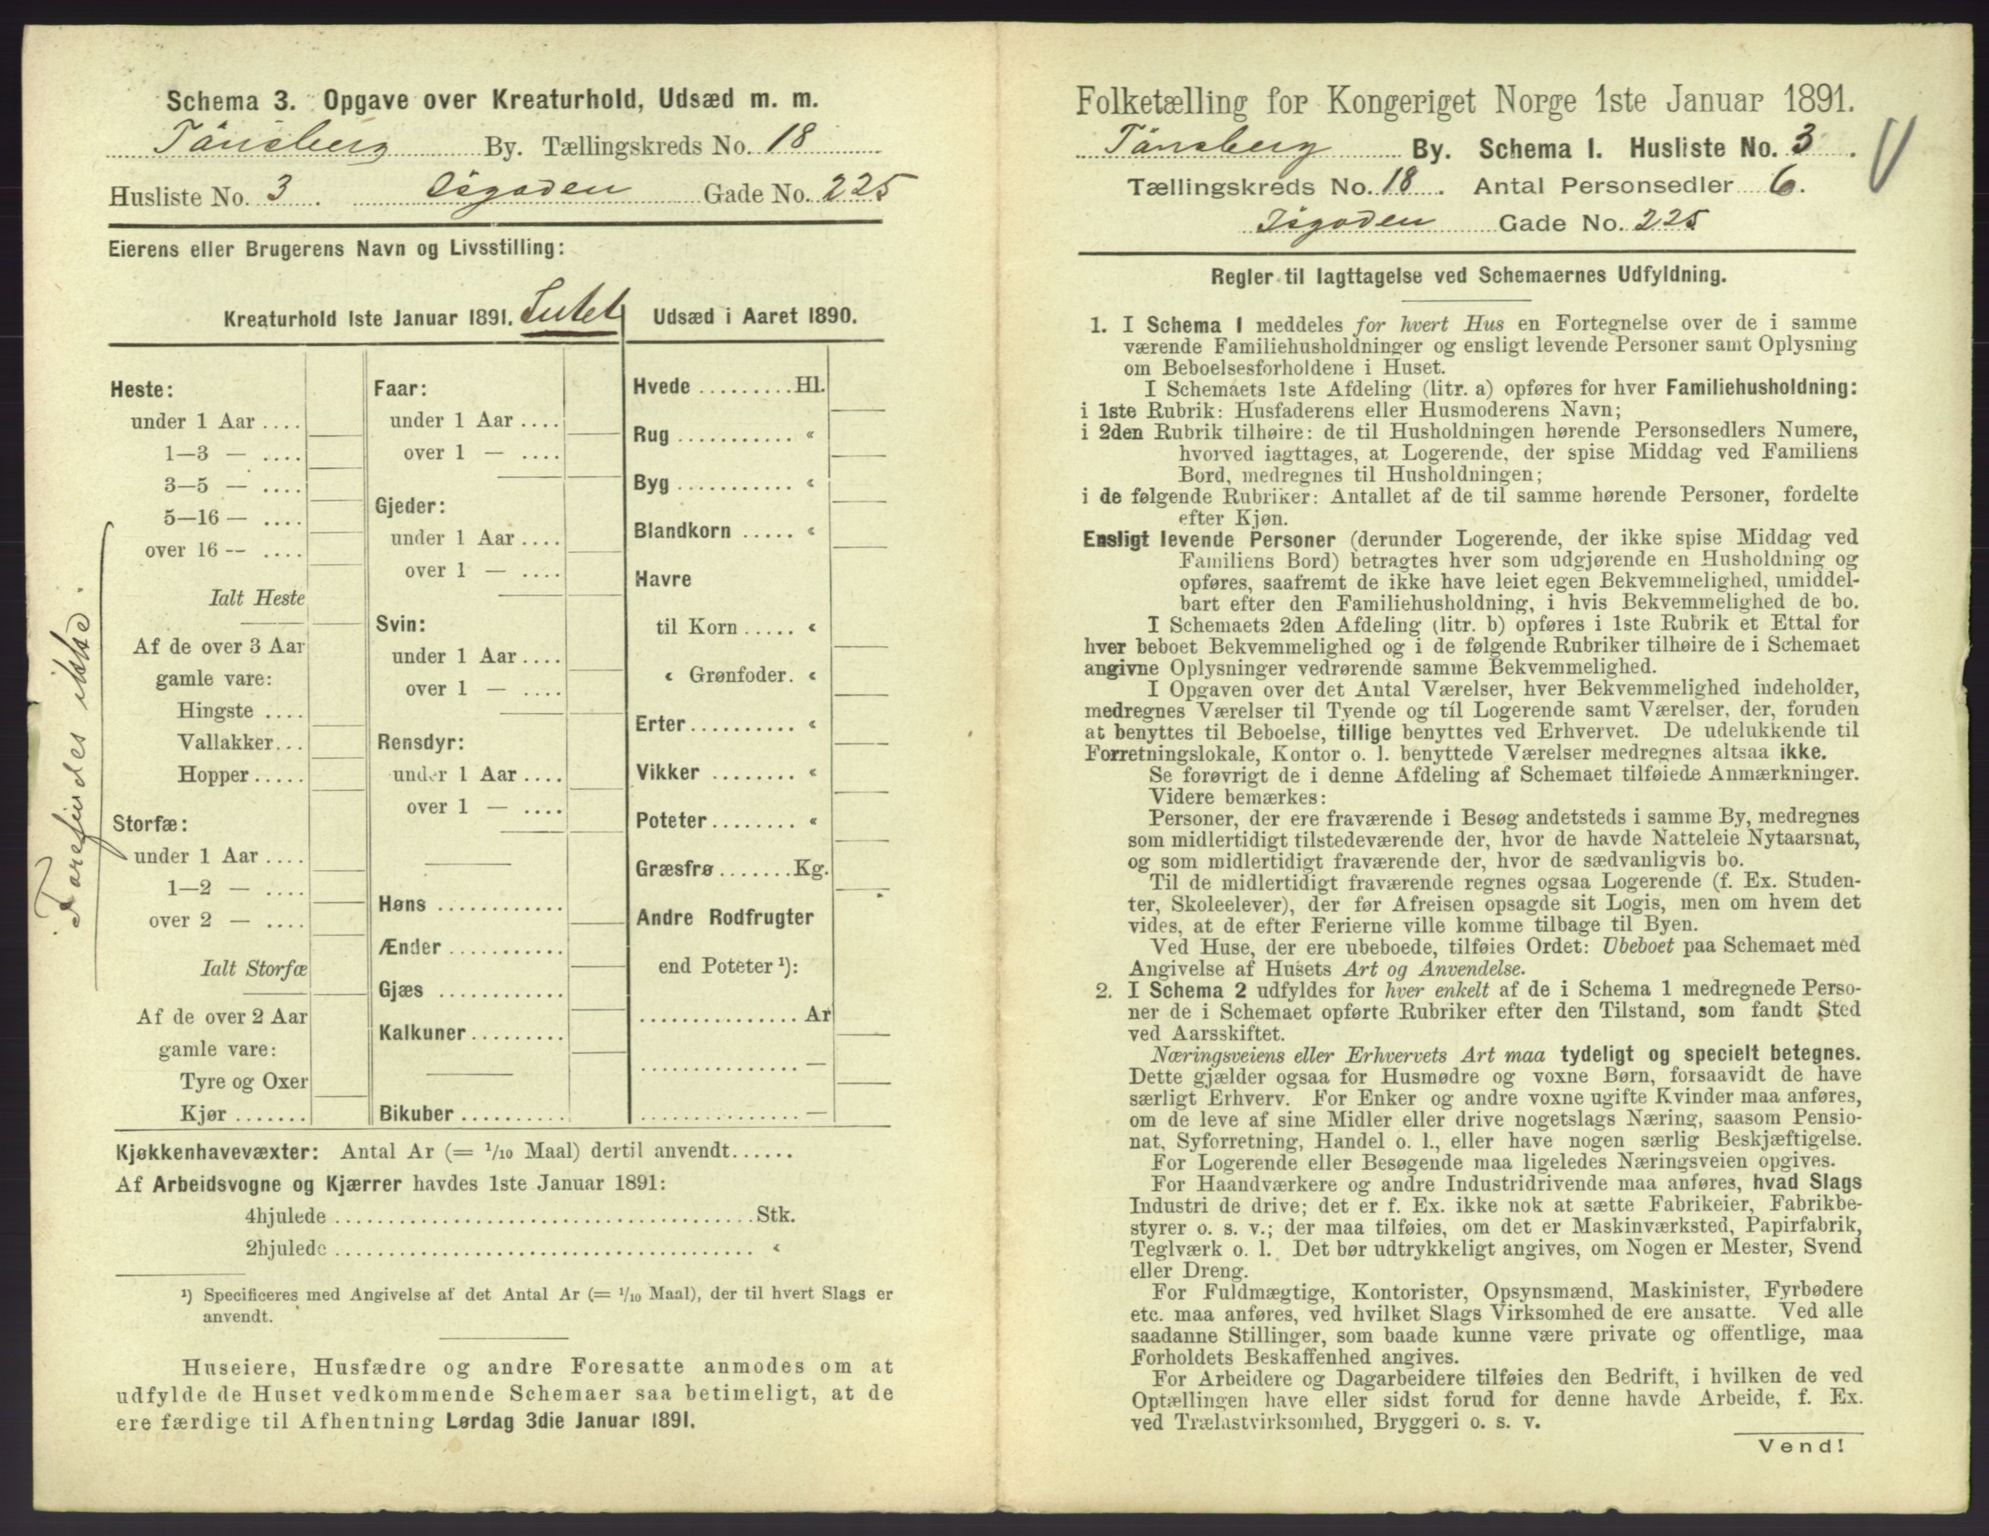 Schema 3. Opgave over Kreaturhold, Udsæd m. m.
Tönsberg By. Tællingskreds No. 18
Husliste No. 3 . Isgaden Gade No. 225
Eierens eller Brugerens Navn og Livsstilling:
Kreaturhold 1ste Januar 1891. Intet
Heste:
under 1 Aar ....
1—3 — ....
3—5 — ....
5—16 — ....
over 16 -- ....
Ialt Heste
Af de over 3 Aar
gamle vare:
Hingste ....
Vallakker...
Hopper.....
Storfæ:
under 1 Aar ....
1—2 — ....
over 2 — ....
Ialt Storfæ
Af de over 2 Aar
gamle vare:
Tyre og Oxer
Kjør.......
Forefindes ikke.
Faar:
under 1 Aar ....
over 1 — ....
Gjeder:
under 1 Aar....
over 1 — ....
Svin:
under 1 Aar....
over 1 — ....
Rensdyr:
under 1 Aar....
over 1 — ....
Høns ............
Ænder...........
Gjæs ............
Kalkuner.........
Bikuber..........
Udsæd i Aaret 1890.
Hvede .........Hl.
Rug ........... «
Byg ........... «
Blandkorn ..... «
Havre
til Korn ..... «
« Grønfoder. «
Erter.......... «
Vikker ........ «
Poteter........ «
Græsfrø.......Kg.
Andre Rodfrugter
end Poteter ¹):
...............Ar
...............—
...............—
Kjøkkenhavevæxter: Antal Ar (= 1/10 Maal) dertil anvendt......
Af Arbeidsvogne og Kjærrer havdes 1ste Januar 1891:
4hjulede ........................................Stk.
2hjulede ........................................ «
¹) Specificeres med Angivelse af det Antal Ar (= 1/10 Maal), der til hvert Slags er
anvendt.
Huseiere, Husfædre og andre Foresatte anmodes om at
udfylde de Huset vedkommende Schemaer saa betimeligt, at de
ere færdige til Afhentning Lørdag 3die Januar 1891.
Folketælling for Kongeriget Norge 1ste Januar 1891.
Tönsberg By. Schema I. Husliste No. 3 .
Tællingskreds No. 18 . Antal Personsedler 6.
Isgaden Gade No. 225
Regler til Iagttagelse ved Schemaernes Udfyldning.
1. I Schema I meddeles for hvert Hus en Fortegnelse over de i samme
værende Familiehusholdninger og ensligt levende Personer samt Oplysning
om Beboelsesforholdene i Huset.
I Schemaets 1ste Afdeling (litr. a) opføres for hver Familiehusholdning:
i 1ste Rubrik: Husfaderens eller Husmoderens Navn;
i 2den Rubrik tilhøire: de til Husholdningen hørende Personsedlers Numere,
hvorved iagttages, at Logerende, der spise Middag ved Familiens
Bord, medregnes til Husholdningen;
i de følgende Rubriker: Antallet af de til samme hørende Personer, fordelte
efter Kjøn.
Ensligt levende Personer (derunder Logerende, der ikke spise Middag ved
Familiens Bord) betragtes hver som udgjørende en Husholdning og
opføres, saafremt de ikke have leiet egen Bekvemmelighed, umiddel-
bart efter den Familiehusholdning, i hvis Bekvemmelighed de bo.
I Schemaets 2den Afdeling (litr. b) opføres i 1ste Rubrik et Ettal for
hver beboet Bekvemmelighed og i de følgende Rubriker tilhøire de i Schemaet
angivne Oplysninger vedrørende samme Bekvemmelighed.
I Opgaven over det Antal Værelser, hver Bekvemmelighed indeholder,
medregnes Værelser til Tyende og til Logerende samt Værelser, der, foruden
at benyttes til Beboelse, tillige benyttes ved Erhvervet. De udelukkende til
Forretningslokale, Kontor o. l. benyttede Værelser medregnes altsaa ikke.
Se forøvrigt de i denne Afdeling af Schemaet tilføiede Anmærkninger.
Videre bemærkes:
Personer, der ere fraværende i Besøg andetsteds i samme By, medregnes
som midlertidigt tilstedeværende der, hvor de havde Natteleie Nytaarsnat,
og som midlertidigt fraværende der, hvor de sædvanligvis bo.
Til de midlertidigt fraværende regnes ogsaa Logerende (f. Ex. Studen-
ter, Skoleelever), der før Afreisen opsagde sit Logis, men om hvem det
vides, at de efter Ferierne ville komme tilbage til Byen.
Ved Huse, der ere ubeboede, tilføies Ordet: Ubeboet paa Schemaet med
Angivelse af Husets Art og Anvendelse.
2. I Schema 2 udfyldes for hver enkelt af de i Schema 1 medregnede Perso-
ner de i Schemaet opførte Rubriker efter den Tilstand, som fandt Sted
ved Aarsskiftet.
Næringsveiens eller Erhvervets Art maa tydeligt og specielt betegnes.
Dette gjælder ogsaa for Husmødre og voxne Børn, forsaavidt de have
særligt Erhverv. For Enker og andre voxne ugifte Kvinder maa anføres,
om de leve af sine Midler eller drive nogetslags Næring, saasom Pensio-
nat, Syforretning, Handel o. l., eller have nogen særlig Beskjæftigelse.
For Logerende eller Besøgende maa ligeledes Næringsveien opgives.
For Haandværkere og andre Industridrivende maa anføres, hvad Slags
Industri de drive; det er f. Ex. ikke nok at sætte Fabrikeier, Fabrikbe-
styrer o. s. v.; der maa tilføies, om det er Maskinværksted, Papirfabrik,
Teglværk o. l. Det bør udtrykkeligt angives, om Nogen er Mester, Svend
eller Dreng.
For Fuldmægtige, Kontorister, Opsynsmænd, Maskinister, Fyrbødere
etc. maa anføres, ved hvilket Slags Virksomhed de ere ansatte. Ved alle
saadanne Stillinger, som baade kunne være private og offentlige, maa
Forholdets Beskaffenhed angives.
For Arbeidere og Dagarbeidere tilføies den Bedrift, i hvilken de ved
Optællingen have eller sidst forud for denne havde Arbeide, f. Ex.
ved Trælastvirksomhed, Bryggeri o. s. v.
Vend!